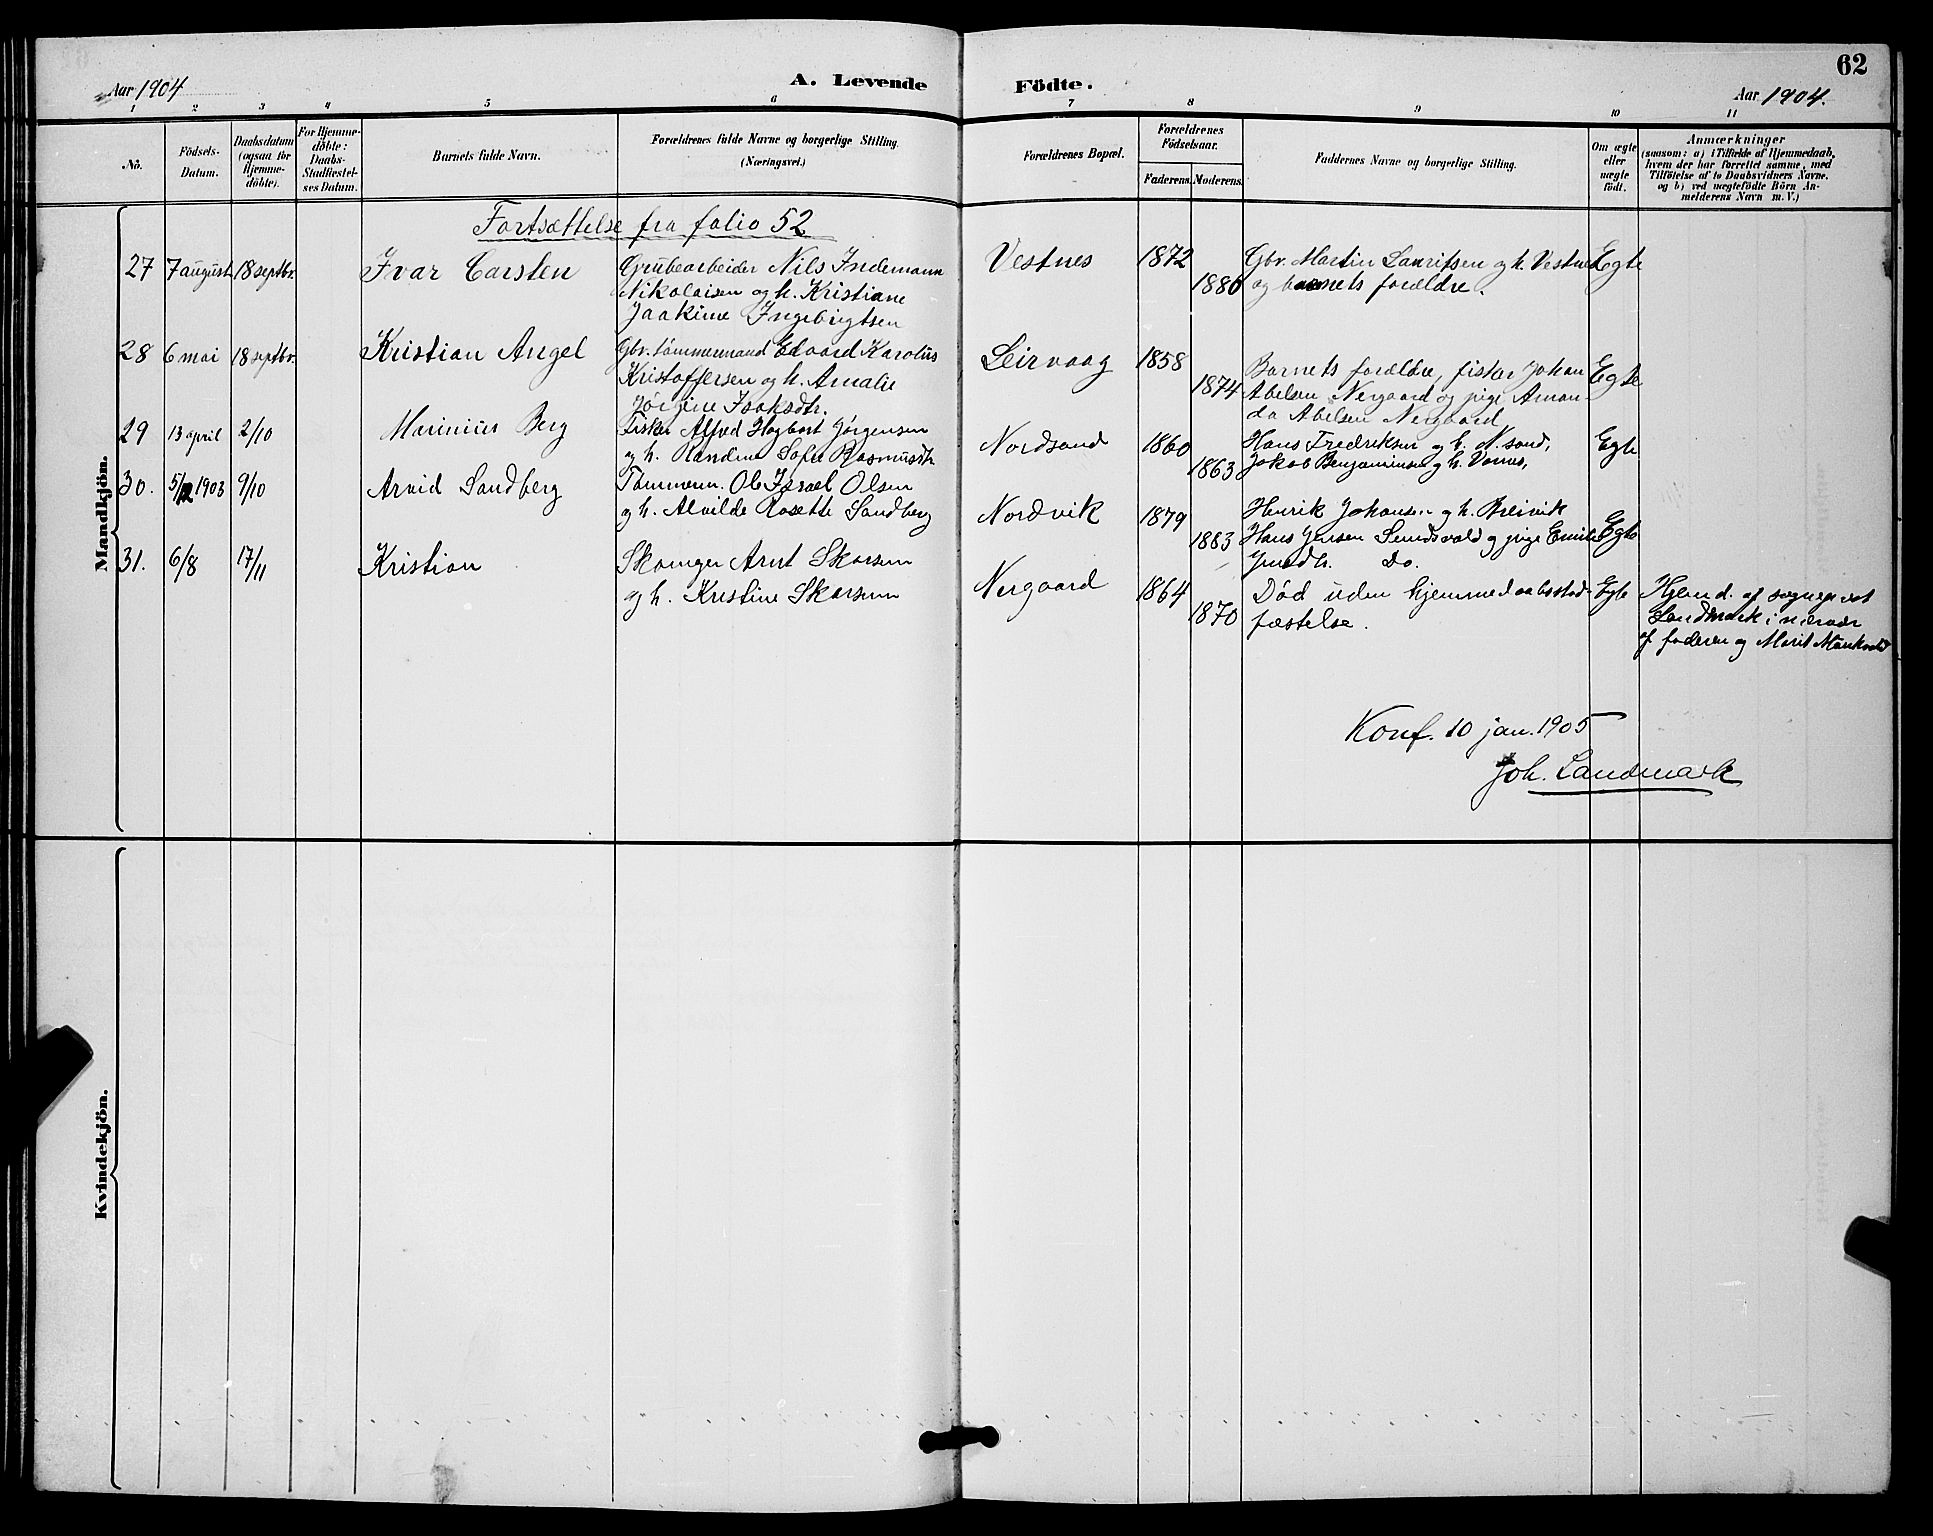 62
Aar 1904
A. Levende Födte.
Aar 1904.
1 2 3 4 5 6 7 8 9 10 11
No.
Födsels-Datum.
Daabsdatum (ogsaa for Hjemme-döbte).
For Hjemme-döbte: Daabs-Stadfæstel-ses Datum.
Barnets fulde Navn.
Forældrenes fulde Navne og borgerlige Stilling. (Næringsvei.)
Forældrenes Bopæl.
Forældrenes Födselsaar.
Faderens. Moderens.
Faddernes Navne og borgerlige Stilling.
Om ægte eller uægte födt.
Anmærkninger
(saasom: a) i Tilfælde af Hjemmedaab,
hvem der har forrettet samme, med
Tilföielse af to Daabsvidners Navne,
og b) ved uægtefödte Börn An-
melderens Navn m. V.)
Mandkjön.
Fortsættelse fra folio 52
27 7 august 18 septbr. Ivar Carsten
Grubearbeider Nils Indemann
Nikolaisen og h. Kristiane
Jaakime Ingebrigtsen
Vestnes 1872 1880
Gbr. Martin Lauritsen og h. Vestnes
og barnets forældre.
Egte
28 6 mai 18 septbr. Kristian Angel
Gbr. tømmermand Edvard Karolus
Kristoffersen og h. Amalie
Jørgine Isaksdtr.
Leirvaag 1858 1874
Barnets forældre, fisker Johan
Abelsen Nergaard og pige Aman-
da Abelsen Nergaard
Egte
29 13 april 2/10 Marinius Berg
Fisker Alfred Hagbart Jørgensen
og h. Randine Sofie Rasmusdtr
Nordsand 1860 1863
Hans Fredriksen og h. N.sand,
Jakob Benjaminsen og h.
Egte
30. 5/12 1903 9/10 Arvid Sandberg
Tømmerm. Ole Israel Olsen
og h. Alvilde Rosette Sandberg
Nordvik 1879 1883
Henrik Johansen og h. Breivik
Hans Jensen og pige Emilie
Do.
Egte
31. 6/8 17/11 Kristian
Skomager Arnt Skarsem
og h. Kristine Skarsem
Nergaard 1864 1870
Død uden hjemmedaabsstad-
fæstelse.
Egte
Hjemd. af sognepræst
Landmark i nærvær
af faderen og Marit
Konf. 10 jan. 1905
Joh. Landmark
Kvindekjön.